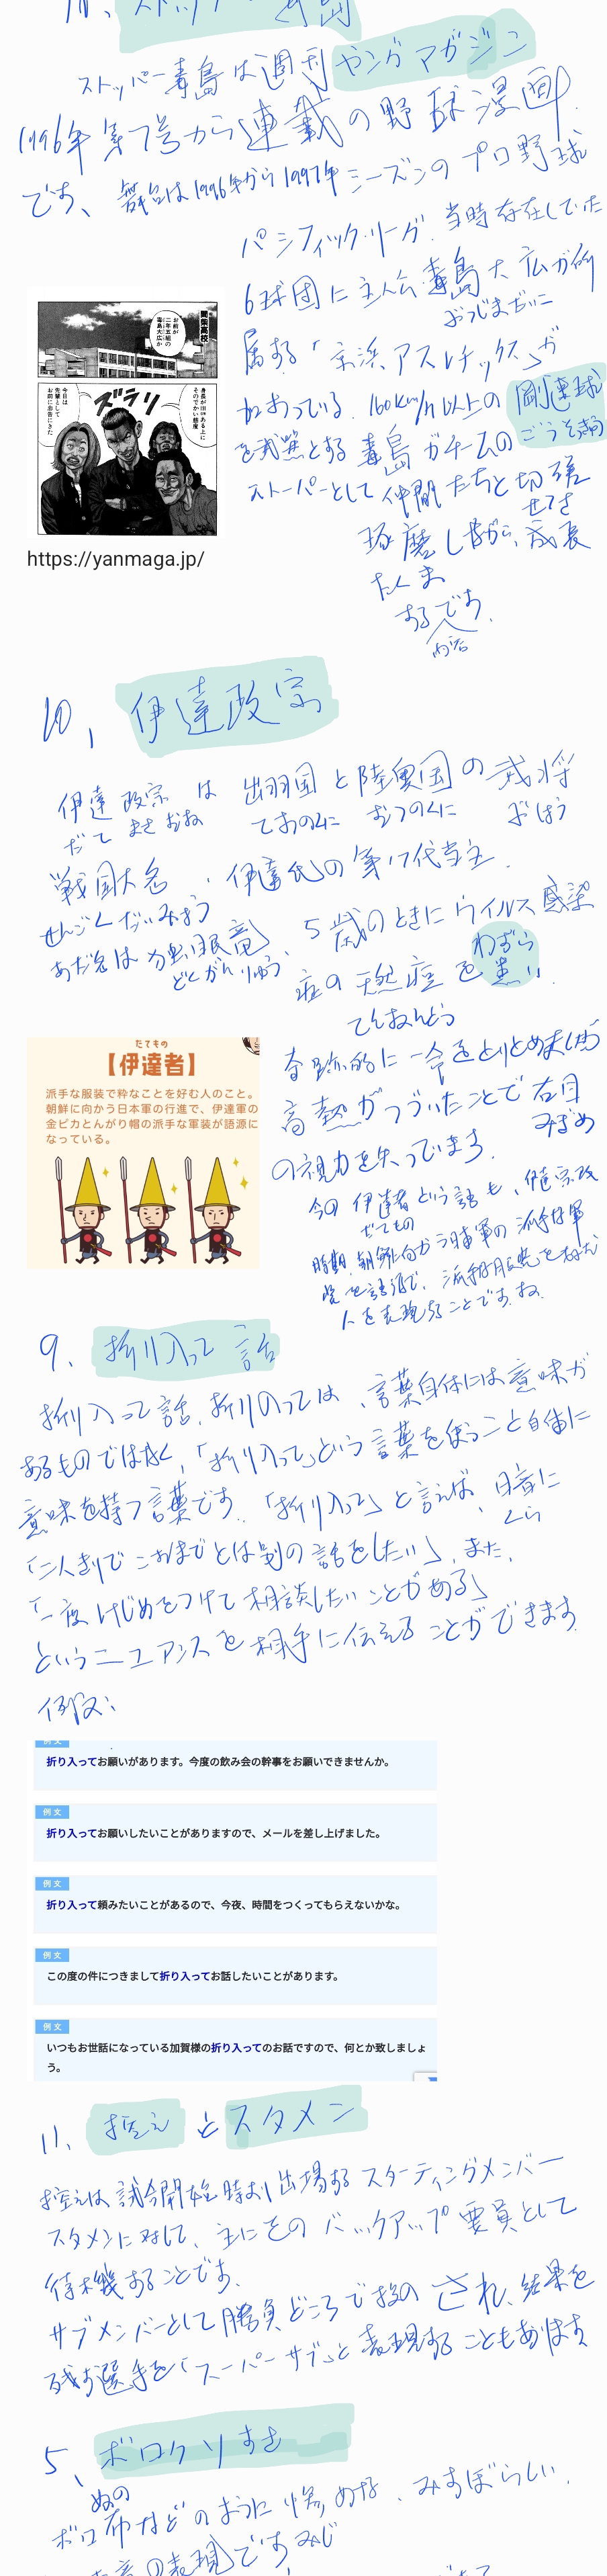 ストッパー毒島は週刊ヤングマガジン
1996年第7号から連載の野球漫画
です、舞台は1996年から1997年シーズンのプロ野球
パシフィック・リーグ.当時存在していた
6球団に主人公毒島大広が所
ぶつじまだいこ
属する「京浜アスレチックス」が
加わっている.160km/h以上の剛速球
を武器とする毒島がチームの
ストーパーとして仲間たちと切磋
せっさ
琢磨しながら、成長
たくま
するです.
物語
閻柴高校
お前が二年五組の毒島大広か
ズラリ
今日は先輩としてお前に忠告にきた
https://yanmaga.jp/
10、伊達政宗
伊達政宗は出羽国と陸奥国の武将
だて まさむね でわのくに むつのくに ぶしょう
戦国大名、伊達氏の第17代当主.
せんごくだいみょう
あだ名は独眼竜、5歳のときにウイルス感染
どくがんりゅう わずら
症の天然痘を患い.
てんねんとう
奇跡的に一命をとりとめましたが
高熱がつづいたことで右目
みぎめ
の視力を失っています.
今の伊達者という語も、伊達宗政
だてもの
時期、朝鮮に向かう日本軍の派手な軍
装を語源で、派手な服装を好む
人を表現することですね.
だてもの
【伊達者】
派手な服装で粋なことを好む人のこと。
朝鮮に向かう日本軍の行進で、伊達軍の
金ピカとんがり帽の派手な軍装が語源に
なっている。
9、折り入って話
折り入って話.折り入っては、言葉自体には意味が
あるものではなく,「折り入って」という言葉を使うこと自体に
意味を持つ言葉です.「折り入って」と言えば、暗に
くら
「二人きりでこれまでとは別の話をしたい」、また、
「一度けじめをつけて相談したいことがある」
というニュアンスを相手に伝えることができます.
例文:
例文
折り入ってお願いがあります。今度の飲み会の幹事をお願いできませんか。
例文
折り入ってお願いしたいことがありますので、メールを差し上げました。
例文
折り入って頼みたいことがあるので、今夜、時間をつくってもらえないかな。
例文
この度の件につきまして折り入ってお話したいことがあります。
例文
いつもお世話になっている加賀様の折り入ってのお話ですので、何とか致しましょ
う。
11、控えとスタメン
控えは試合開始時より出場するスターティングメンバー
スタメンに対して、主にそのバックアップ要員として
待機することです.
サブメンバーとして勝負どころで投入され、結果を
残す選手を「スーパーサブ」と表現することもあります
5、ボロクソすき
ぬの
ボロ布などのように惨めな、みすぼらしい.